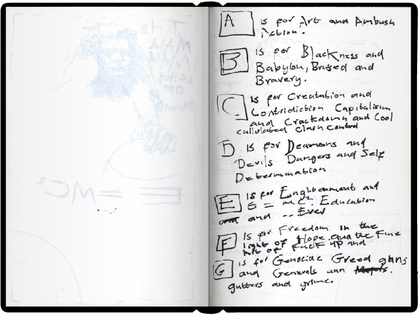 E = MC²
A is for Art and Ambush
Action.
B is for Blackness and
Babylon, Bruised and
Bravery.
C is for Creatation and
Contridiction Capitalism
and Crackdown and Cool
calculated clash control
D is for Deamons and
Devils Dangers and Self
Determination
E is for Englhterment and
E = mc². Education
and -- Ever
F is for Freedom in the
light of Hope
of Fuck up and
G is for Genocide Greed guns
and Generals
gutters and grime.